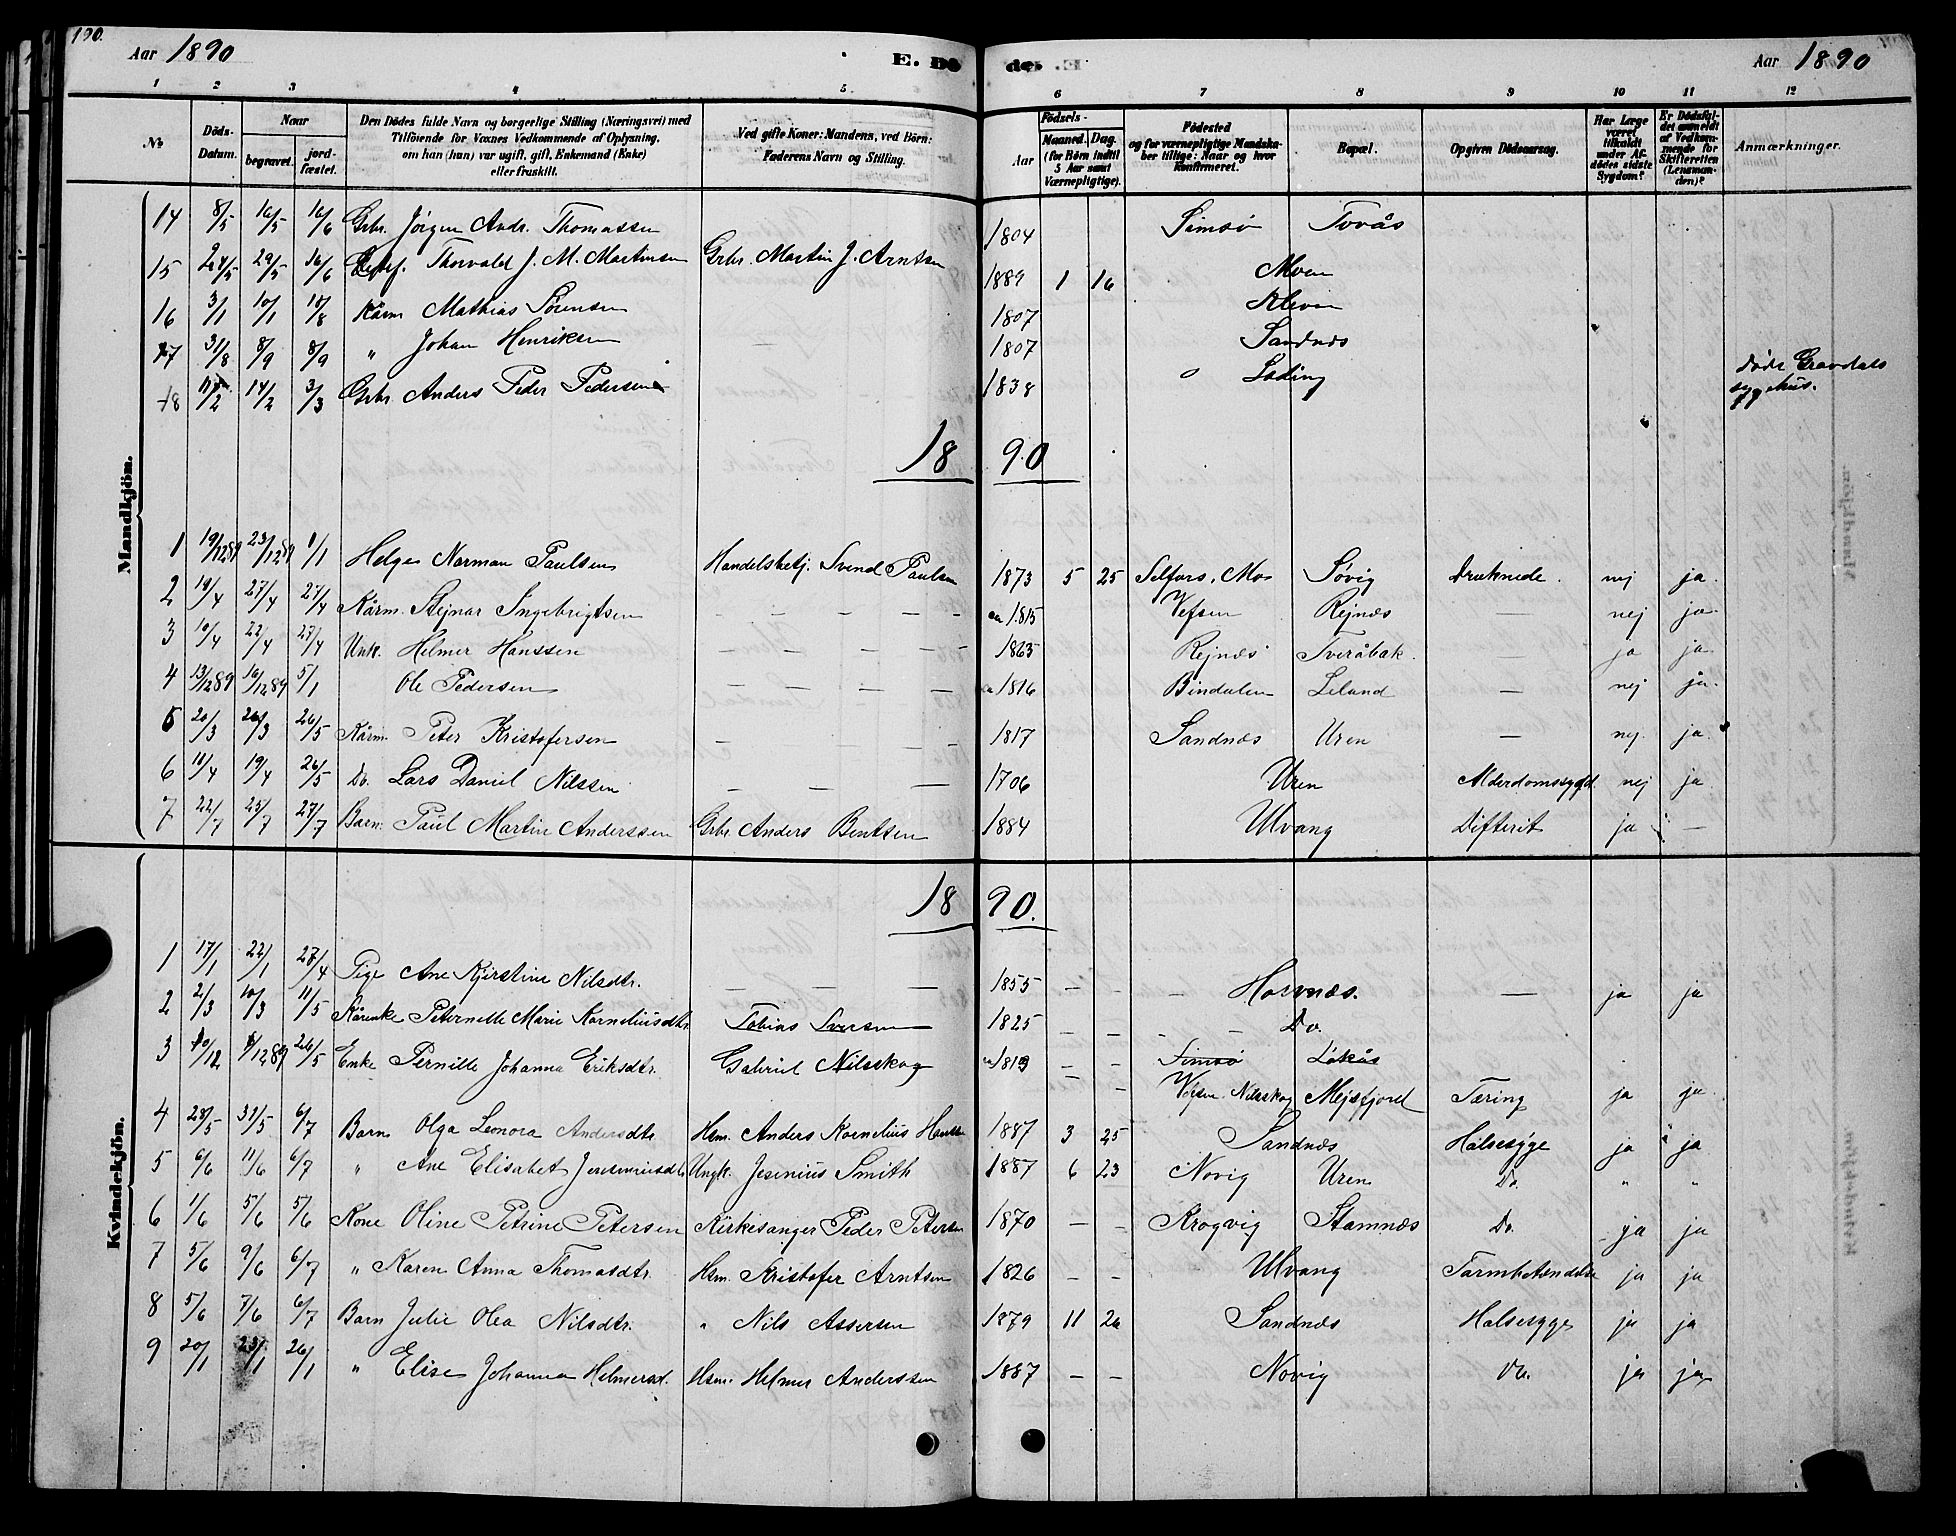 190.
Aar 1890 E. Dö de. Aar 1890
1 2 3 4 5 6 7 8 9 10 11 12
No Döds-Datum. Naar begravet. jordfæstet. Den Dødes fulde Navn og borgerlige Stilling (Næringsvei) med Tilföiende for Voxnes Vedkommende af Oplysning, om han (hun) var ugift, gift, Enkemand (Enke) eller fraskilt. Ved gifte Koner: Mandens, ved Börn: Faderens Navn og Stilling. Födsels- Aar Maaned. Dag. (for Börn indtil 5 Aar samt Værnepligtige). Födested og for værnepligtige Mandskaber tillige: Naar og hvor konfirmeret. Bopæl. Opgiven Dödsaarsag. Har Læge været tilkaldt under Afdødes sidste Sygdom? Er Dödsfaldet anmeldt af Vedkommende for Skifteretten (Lensmanden)? Anmærkninger.
Mandkjön.
14 8/5 16/5 16/6 Grbr. Jörgen Andr. Thomassen 1804 Simsö Tovås
15 24/5 29/5 16/6 Thorvald J. M. Martinsen Grbr. Martin J. Arntsen 1889 1 16 Moen
16 3/1 10/1 10/8 Kårm Mathias Sörensen 1807 Kleven
17 31/8 8/9 8/9 " Johan Henriksen 1807 Sandnes
18 11/2 14/2 3/3 Grbr Anders Peder Pedersen 1838 Döde Gravdals sygehus.
18 90
1 19/12 89 23/12 89 1/1 Helge Norman Paulsen Handelsbetj. Svend Paulsen 1873 5 25 Selfors, Mo Sövig Druknede. nej ja.
2 18/4 27/4 27/4 Kårm. Stejnar Ingebrigtsen — — — — — ca 1815 Vefsen Rejnes — nej ja.
3 10/4 22/4 27/4 Unk. Helmer Hanssen — — — — — 1865 Rejnes Tveråbak. — ja ja.
4 13/12 89 16/12 89 5/1 Ole Pedersen — — — — — ca 1816 Bindalen Leland — nej ja.
5 20/3 26/3 26/5 Kårm. Peter Kristofersen — — — — 1817 Sandnæs Uren — nej. ja.
6 11/4 19/4 26/5 Do. Lars Daniel Nilssen — — — — 1706 Uren Alderdomssygd. nej ja
7 22/7 25/7 27/7 Barn. Paul Martin Anderssen Grbr Anders Bentsen 1884 Ulvang Difterit ja —
Kvindekjön.
18 90.
1 17/1 22/1 27/4 Pige Ane Kjirstine Nilsdtr. — — — — 1855 — — — Hornæs. — ja ja
2 2/3 10/3 11/5 Kårenke Peternelle Marie Korneliusdtr Tobias Iversen 1825 — — — — Do.
3 Enke Pernille Johanna Eriksdtr. Gabriel Nilsskog ca 1819 — — Simsö Låkås
— — Vefsn. Nilsskog Mejsfjord Tæring ja ja
4 28/5 31/5 6/7 Barn Olga Leonora Andersdtr. Hsm. Anders Kornelius Hanssen 1887 3 25 Sandnæs Halsesyge ja ja
5 6/6 11/6 6/7 " Ane Elisabet Ungk. Jesenius Smith 1887 6 23 Novig Uren Do. " "
6 1/6 5/6 5/6 Kone Oline Petrine Petersen Kirkesanger Peder Petersen 1870 — — Krogvig Stamnæs Do. ja ja
7 5/6 9/6 6/7 " Karen Anna Thomasdtr. Hsm. Kristofer Arntsen 1826 — — Ulvang Tarmbetændelse ja ja
8 5/6 7/6 6/7 Barn Julie Olea Nilsdtr. " Nils Assersen 1879 11 26 Sandnæs Halsesyge ja ja
9 20/1 23/1 26/1 " Elise Johanna Helmersd. Hsm. Helmer Anderssen 1887 — — Novig Do. ja ja